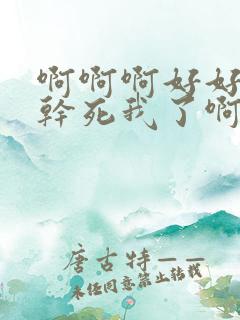 啊啊啊好好
幹死我了啊
唐古特——
未经同意禁止转载